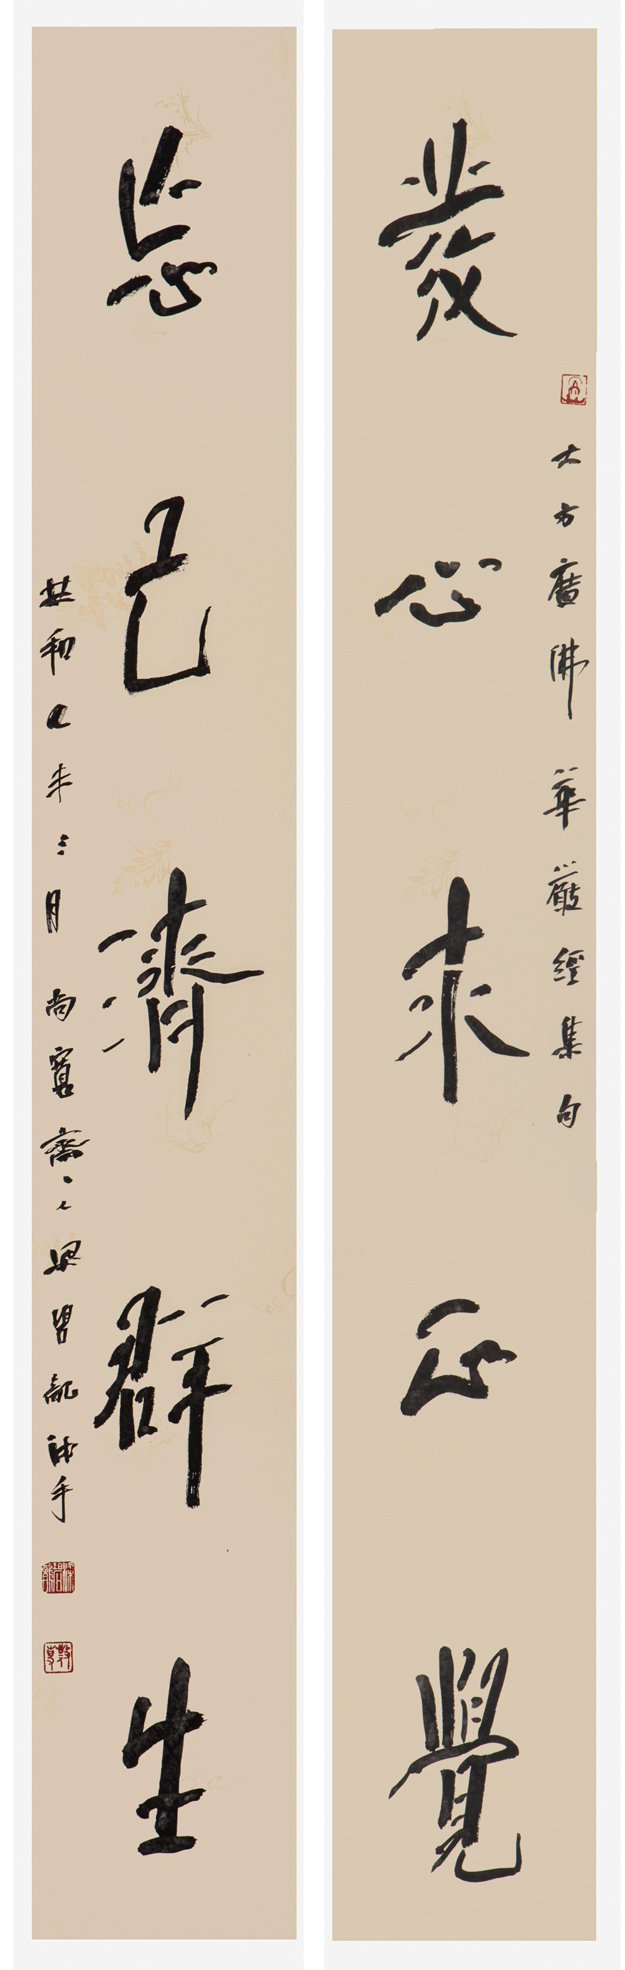 大方廣佛華嚴經集句
發心求正覺
忘己濟群生
共和乙未三月尚寬齋